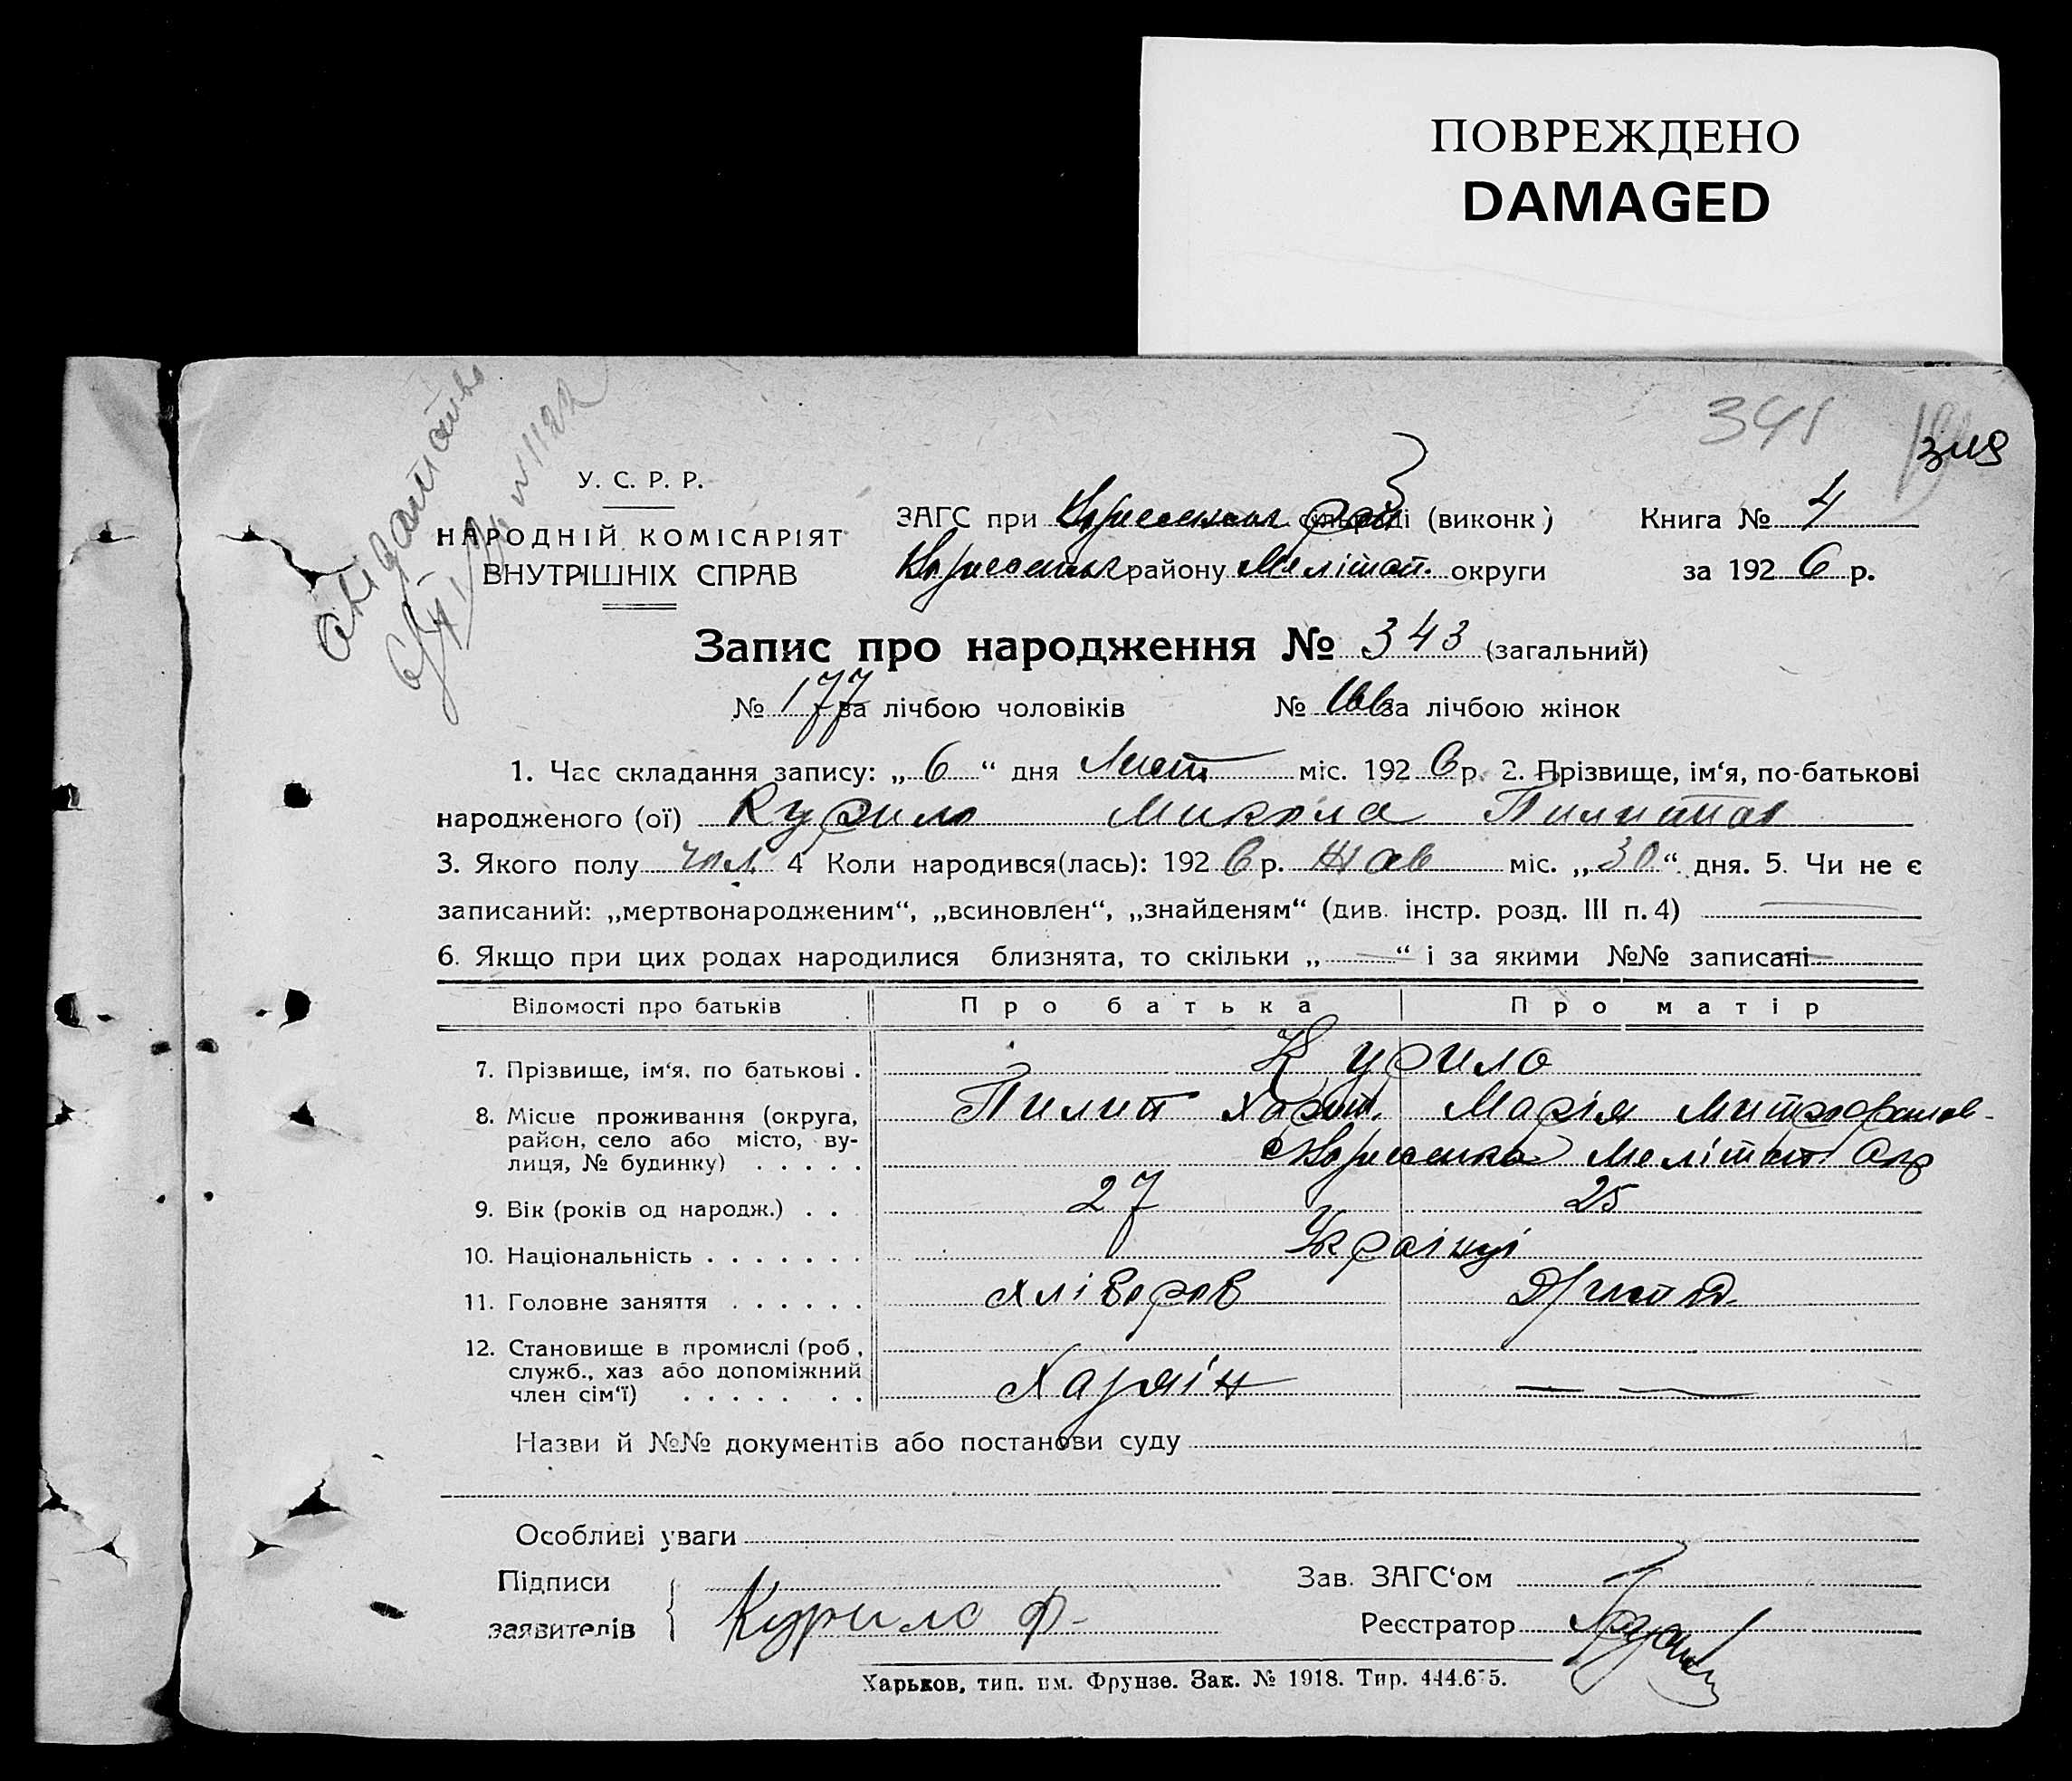 ПОВРЕЖДЕНО
DAMAGED
341
349
У. С. Р. Р.
НАРОДНІЙ КОМІСАРІЯТ
ВНУТРІШНІХ СПРАВ
ЗАГС при сільраді (виконк)
Книга № 4
району Меліtоп. округи
за 1926 р.
Запис про народження № 343 (загальний)
№ 177 за лічбою чоловіків № 166 за лічбою жінок
1. Час складання запису: „ 6 “ дня Лист міс. 1926 р. 2. Прізвище, ім‘я, по-батькові
народженого (ої) Курило Микола Пилипов
3. Якого полу чол. 4 Коли народився(лась): 1926 р. Жов міс. „30“ дня. 5. Чи не є
записаний: „мертвонародженим“, „всиновлен“, „знайденям“ (див. інстр. розд. III п. 4) —
6. Якщо при цих родах народилися близнята, то скільки „ — “ і за якими №№ записані —
Відомості про батьків Про батька Про матір
7. Прізвище, ім‘я, по батькові . Курило
Пилип Харит. Марія Митрофанов-
8. Місце проживання (округа,
район, село або місто, ву-
лиця, № будинку) . . . . . Меліtоп Окр
9. Вік (років од народж.) . . 27 25
10. Національність . . . . . . . Українці
11. Головне заняття . . . . . . Хлібороб
12. Становище в промислі (роб,
служб., хаз або допоміжний
член сім‘ї) . . . . . . . Хазяїн — —
Назви й №№ документів або постанови суду
Особливі уваги
Підписи
заявителів
Курило Ф.
Зав. ЗАГС‘ом
Реєстратор
Харьков, тип. им. Фрунзе. Зак. № 1918. Тир. 444.675.